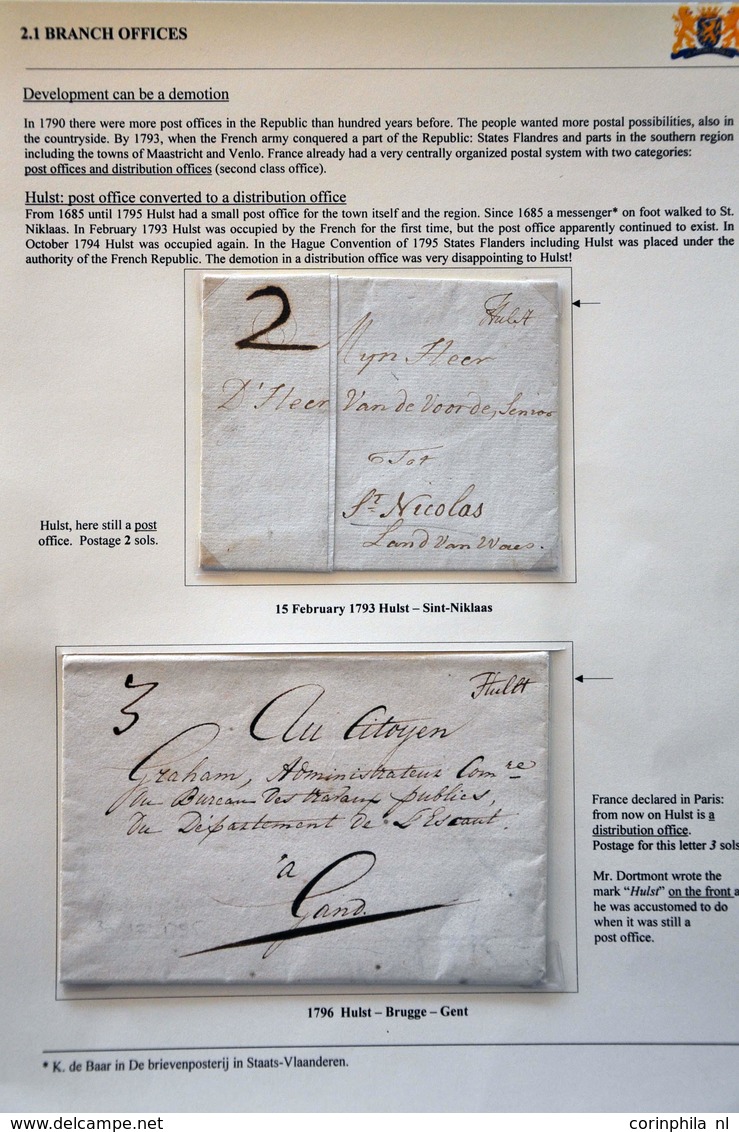 2.1 BRANCH OFFICES
Development can be a demotion
In 1790 there were more post offices in the Republic than hundred years before. The people wanted more postal possibilities, also in
the countryside. By 1793, when the French army conquered a part of the Republic: States Flandres and parts in the southern region
including the towns of Maastricht and Venlo. France already had a very centrally organized postal system with two categories:
post offices and distribution offices (second class office).
Hulst: post office converted to a distribution office
From 1685 until 1795 Hulst had a small post office for the town itself and the region. Since 1685 a messenger* on foot walked to St.
Niklaas. In February 1793 Hulst was occupied by the French for the first time, but the post office apparently continued to exist. In
October 1794 Hulst was occupied again. In the Hague Convention of 1795 States Flanders including Hulst was placed under the
authority of the French Republic. The demotion in a distribution office was very disappointing to Hulst!
2
Hulst
Myn Heer
D'Heer Van de Voorde, Senior
Tot
St Nicolas
Land Van Waes.
Hulst, here still a post
office. Postage 2 sols.
15 February 1793 Hulst – Sint-Niklaas
3
Hulst
Au Citoyen
Graham, Administrateur Comre
du Bureau des travaux publics,
du Département de L'Escaut.
à
Gand.
France declared in Paris:
from now on Hulst is a
distribution office.
Postage for this letter 3 sols
Mr. Dortmont wrote the
mark "Hulst" on the front a
he was accustomed to do
when it was still a
post office.
1796 Hulst – Brugge – Gent
* K. de Baar in De brievenposterij in Staats-Vlaanderen.
delcampe.net
corinphila nl